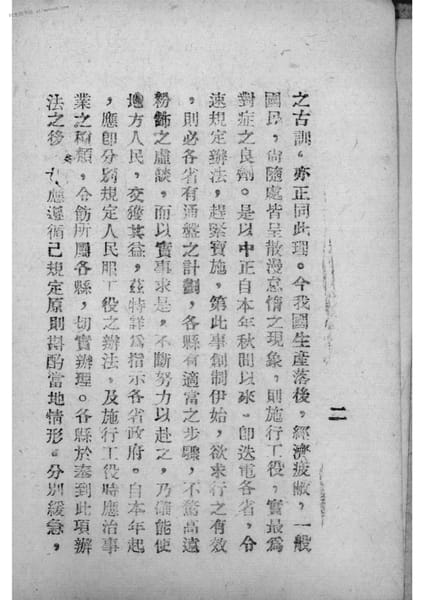 二
之古訓，亦正同此理。今我國生產落後，經濟疲敝，一般
國民，尙隨處皆呈散漫怠惰之現象，則施行工役，實最爲
對症之良劑。是以中正自本年秋間以來，卽迭電各省，令
速規定辦法，趕緊實施。第此事創制伊始，欲求行之有效
，則必各省有通盤之計劃，各縣有適富之步驟，不驚高遠
粉飾之虛談，而以實事求是，不斷努力以赴之，乃確能使
地方人民，交獲其益，茲特詳爲指示各省政府。自本年起
，應卽分別規定人民服工役之辦法，及施行工役時應治事
業之種類，令飭所屬各縣，切實辦理。各縣於奉到此項辦
法之後，應遵循已規定原則斟酌當地情形，分別緩急，